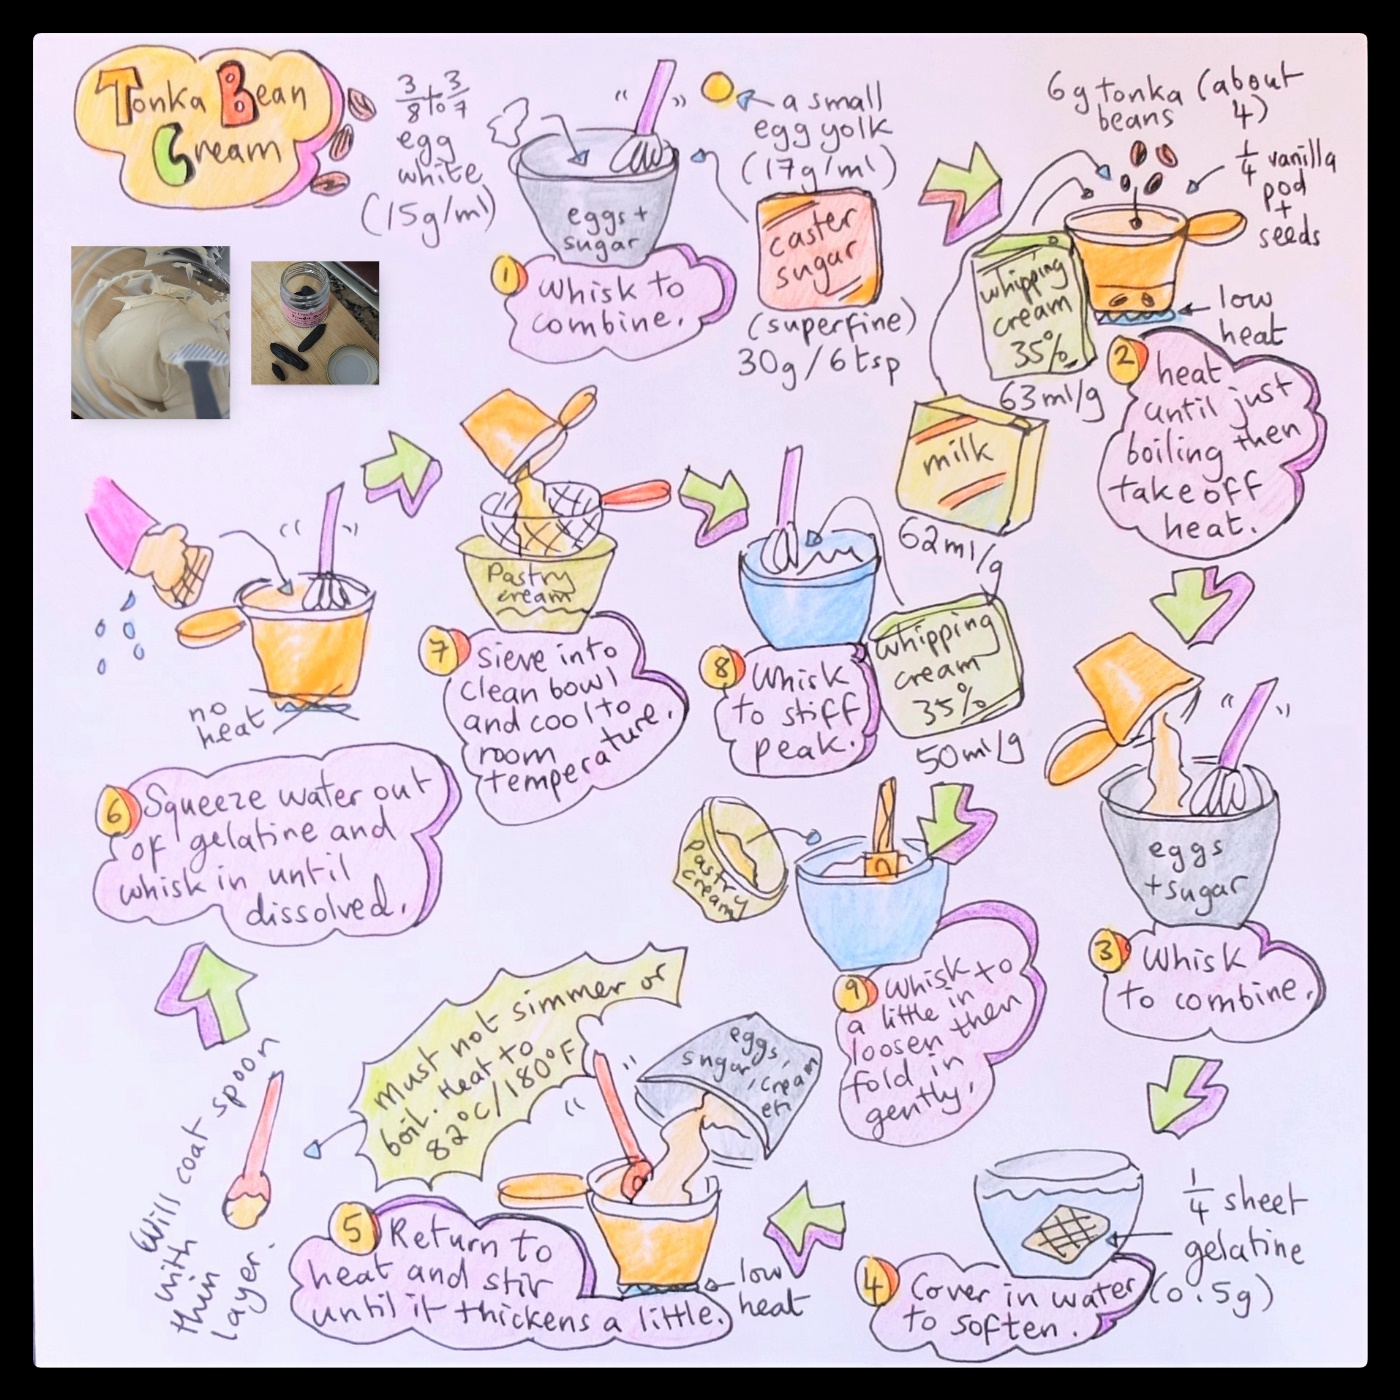 Tonka Bean
Cream
3/8 to 3/7
egg
white
(15g/ml)
eggs +
sugar
a small
egg yolk
(17g/ml)
caster
sugar
(superfine)
30g/6 tsp
1
Whisk to
combine.
6g tonka (about
beans 4)
1/4 vanilla
pod
+
seeds
whipping
cream
35%
63ml/g
milk
62ml/g
low
heat
2
heat
until just
boiling then
take off
heat.
eggs
+sugar
3
Whisk
to combine.
1/4 sheet
gelatine
(0.5g)
4
Cover in water
to soften.
eggs,
sugar, cream
etc
low
heat
5
Return to
heat and stir
until it thickens a little.
Must not simmer or
boil. Heat to
82°C/180°F
Will coat spoon
with
thin
layer.
no
heat
6
Squeeze water out
of gelatine and
whisk in until
dissolved.
Pastry
cream
7
sieve into
clean bowl
and cool to
room
temperature.
whipping
cream
35%
50ml/g
8
Whisk
to stiff
peak.
Pastry
cream
9
Whisk to
a little in
loosen then
fold in
gently.